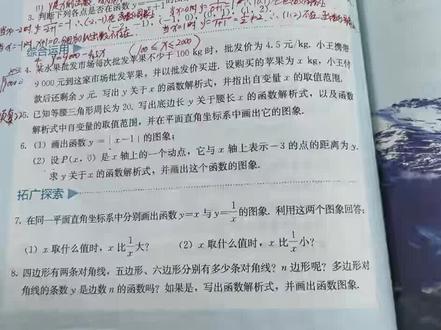 3. 判断下列各点是否在函数
综合运用
4. 某水果批发市场每次批发苹果不少于 100 kg 时，批发价为 4.5 元/kg，小王携带
9 000 元到这家市场批发苹果，并以批发价买进. 设购买的苹果为 x kg，小王付
款后还剩余 y 元. 写出 y 关于 x 的函数解析式，并指出自变量 x 的取值范围.
5. 已知等腰三角形周长为 20. 写出底边长 y 关于腰长 x 的函数解析式，以及函数
解析式中自变量的取值范围，并在平面直角坐标系中画出它的图象.
6. (1) 画出函数 y=|x-1| 的图象;
(2) 设 P(x, 0) 是 x 轴上的一个动点，它与 x 轴上表示 -3 的点的距离为 y.
求 y 关于 x 的函数解析式，并画出这个函数的图象.
拓广探索
7. 在同一平面直角坐标系中分别画出函数 y=x 与 y=1/x 的图象. 利用这两个图象回答:
(1) x 取什么值时，x 比 1/x 大? (2) x 取什么值时，x 比 1/x 小?
8. 四边形有两条对角线，五边形、六边形分别有多少条对角线? n 边形呢? 多边形对
角线的条数 y 是边数 n 的函数吗? 如果是，写出函数解析式，并画出函数图象.